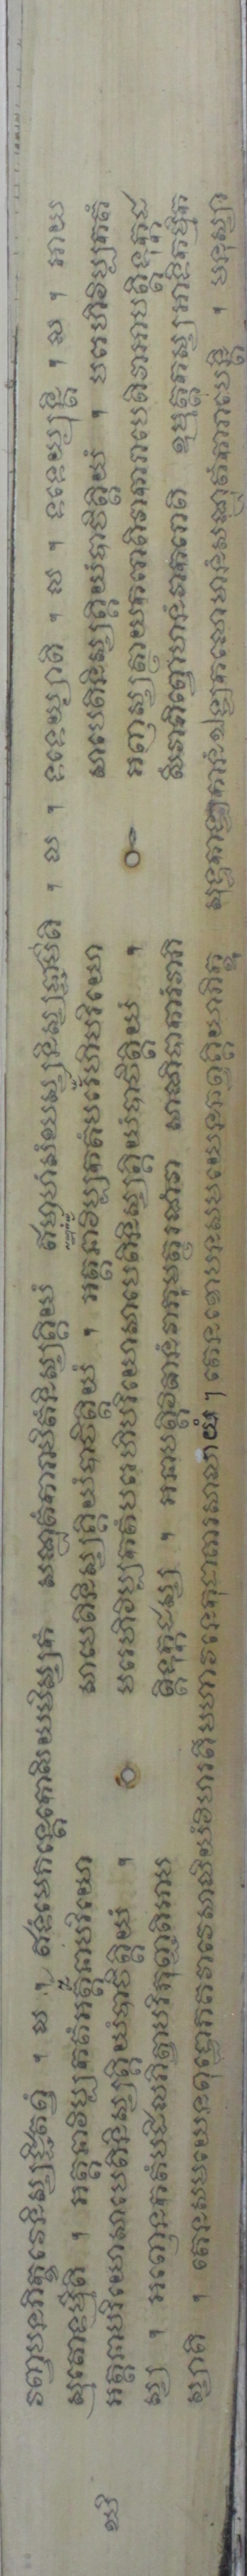 វញ្ចបនភិក្ខវេនិស្សជ្ជិតព្វំ ។ ល ។ ឥទំមេភន្តេកោសិយមិស្សកំ សណ្ឋតំការាបិតំនិស្សគ្គិយំ ឥមាហំសំឃស្សនិស្សជ្ជាមីតិ ។ ល ។ ទទេយ្យាតិ ។ ល ។ ទទេយ្យុន្តិ ។ ល ។ អាយ
ស្មតោទម្មីតិ ។ អត្តនាវិប្បកតំអត្តនាបរិយោ សាបេតិនិស្សគ្គិយំបាចិត្តិយំ ។ អត្តនាវិប្បកតំបរេហិបរិយោ សាបេតិនិស្សគ្គិយំបាចិត្តិយំ ។ បរេហិវិប្បកតំ
អត្តនាបរិយោសាបេតិនិស្សគ្គិយំបាចិត្តិយំ ។ បរេហិវិប្បកតំបរេហិបរិយោសាបេតិនិស្សគ្គិយំបាចិត្តិយំ ។ អញ្ញស្សត្ថាយករោតិវាការាបេតិវាអាបត្តិទុក្កដ
ស្ស ។ អញ្ញេនកតំបដិលភិត្វាបរិភុញ្ជតិអាប ត្តិទុក្កដស្ស ។ អនាបត្តិវិតានំវាភុមត្ថរណំវា សាណិបាការំវាភិ សឹវាពិព្វោហនំវាករោតិ ឧម្មត្តកស្សអាទិកម្មិក
ស្សាតិ ។ តេនសមយេនពុទ្ធោភគវាវេសាលិយំវិហរតិមហាវនេកុដាគារសាលាយំ ។ តេនខោបនសមយេនឆព្វគ្គិយាភិក្ខូ សុទ្ធកាឡកានំឯឡកលោមានំសណ្ឋតំការាបេន្តិ ។ មនុស្សា